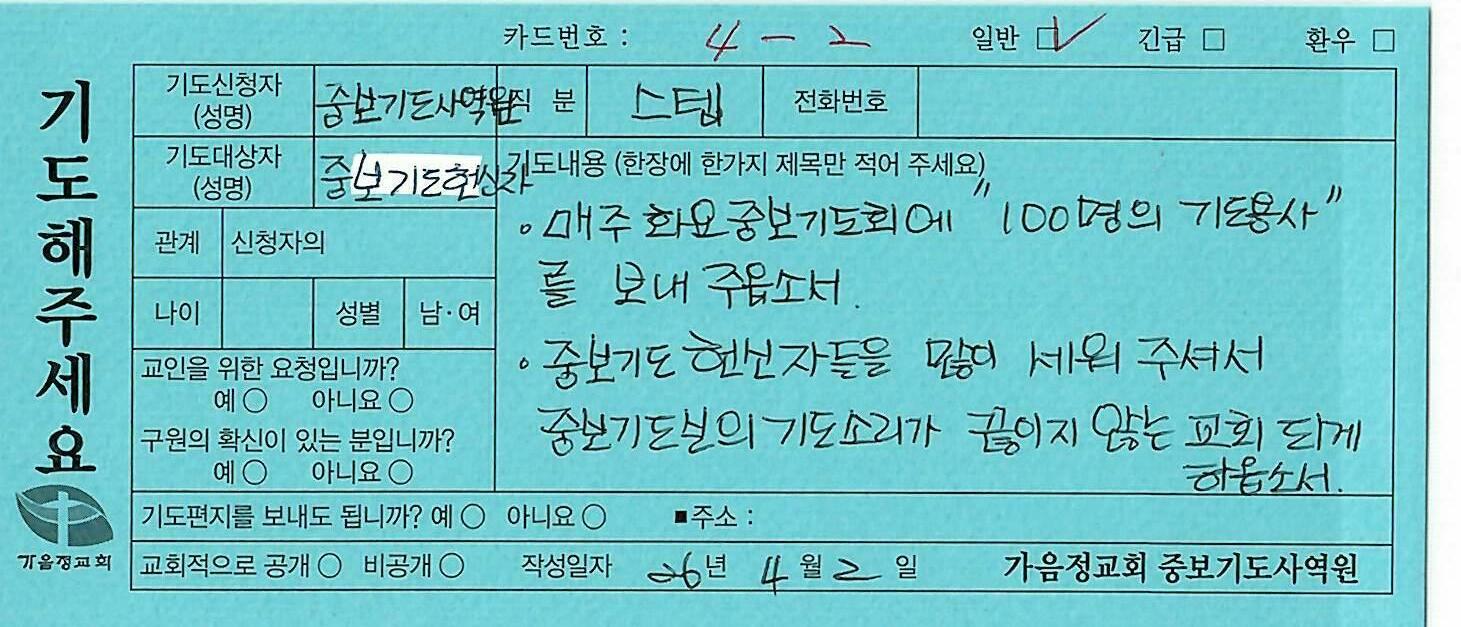 카드번호 : 4 - 2 일반 ☑ 긴급 □ 환우 □
기도해주세요
기도신청자 (성명) 중보기도사역원 직 분 스텝 전화번호
기도대상자 (성명) 중보기도헌신자
기도내용 (한장에 한가지 제목만 적어 주세요)
• 매주 화요중보기도회에 "100명의 기도용사"
를 보내 주옵소서.
• 중보기도 헌신자들을 많이 세워 주셔서
중보기도실의 기도소리가 끊이지 않는 교회 되게
하옵소서.
관계 신청자의
나이 성별 남·여
교인을 위한 요청입니까?
예 ○ 아니요 ○
구원의 확신이 있는 분입니까?
예 ○ 아니요 ○
기도편지를 보내도 됩니까? 예 ○ 아니요 ○ ■주소 :
교회적으로 공개 ○ 비공개 ○ 작성일자 26년 4월 2일 가음정교회 중보기도사역원
가음정교회